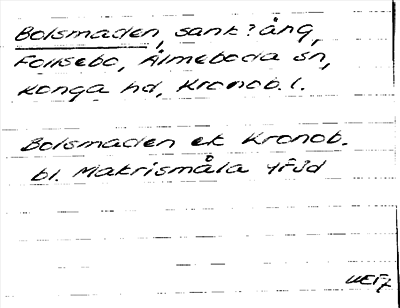 Bolsmaden, sank? äng,
Folksebo, Älmeboda sn,
Konga hd, Kronob. l.
Bolsmaden ek Kronob.
bl. Matrismåla 4F3d